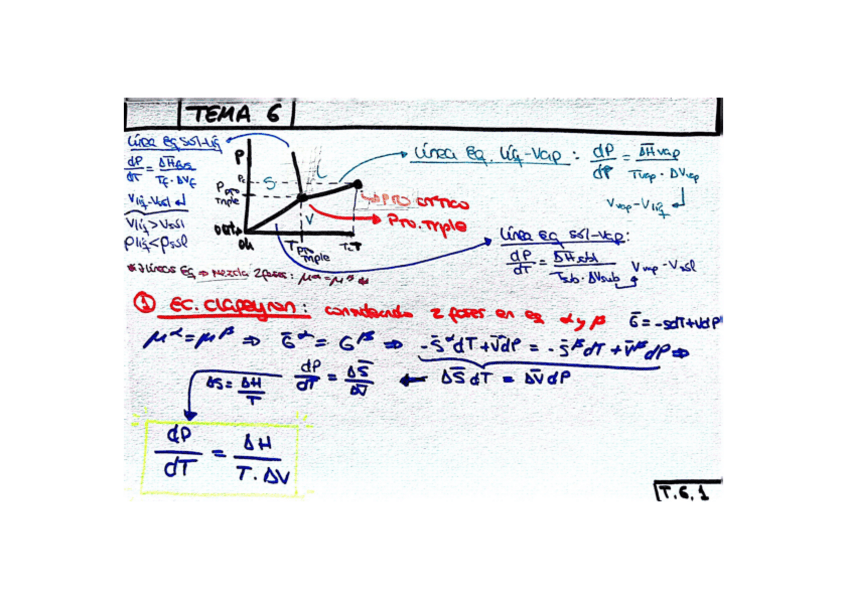 TEMA 6
Línea Eq Sól-Líq
dP/dT = ΔHfus/Tf · ΔVf
Vlíq - Vsól
Vlíq > Vsól
ρlíq < ρsól
P
Pc
P pto Triple
0atm
0k
S
L
V
T pto Triple
Tc T
Pto crítico
Pto. Triple
Línea Eq. Líq-Vap : dP/dP = ΔHvap/Tvap · ΔVvap
Vvap - Vlíq
Línea Eq Sól-Vap:
dP/dT = ΔHsbl/Tsub · ΔVsub
Vvap - Vsól
* Líneas Eq ⇒ Mezcla 2 fases: μα = μβ
① Ec. Clapeyron: considerando 2 fases en eq α y β
G̅ = -SdT + VdP
μα = μβ ⇒ G̅α = Gβ ⇒ -S̅α dT + V̅dP = -S̅β dT + V̅β dP ⇒
ΔS̅ dT = ΔV̅ dP
dP/dT = ΔS̅/ΔV̅ ←
ΔS = ΔH/T
dP/dT = ΔH/T · ΔV
T.6.1